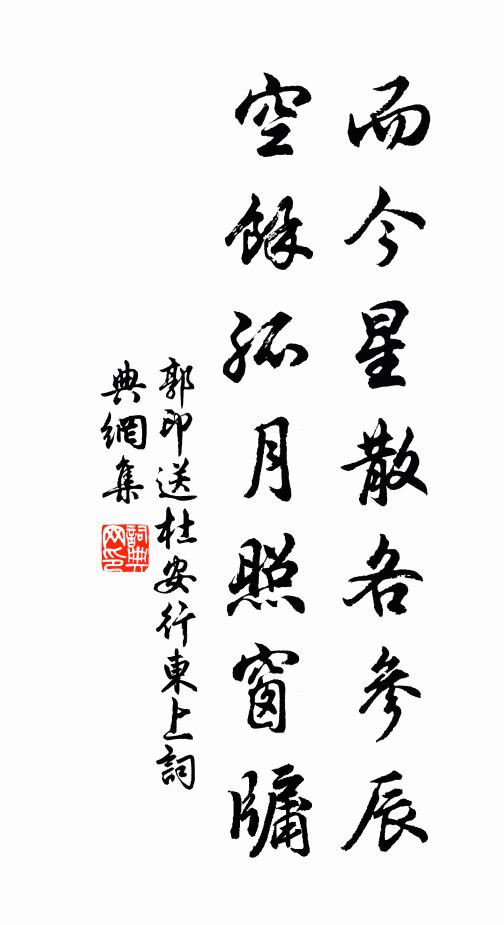 而今星散各參辰
空餘孤月照窗牖
郭印送杜安行東上詞
典網集
詞典網印